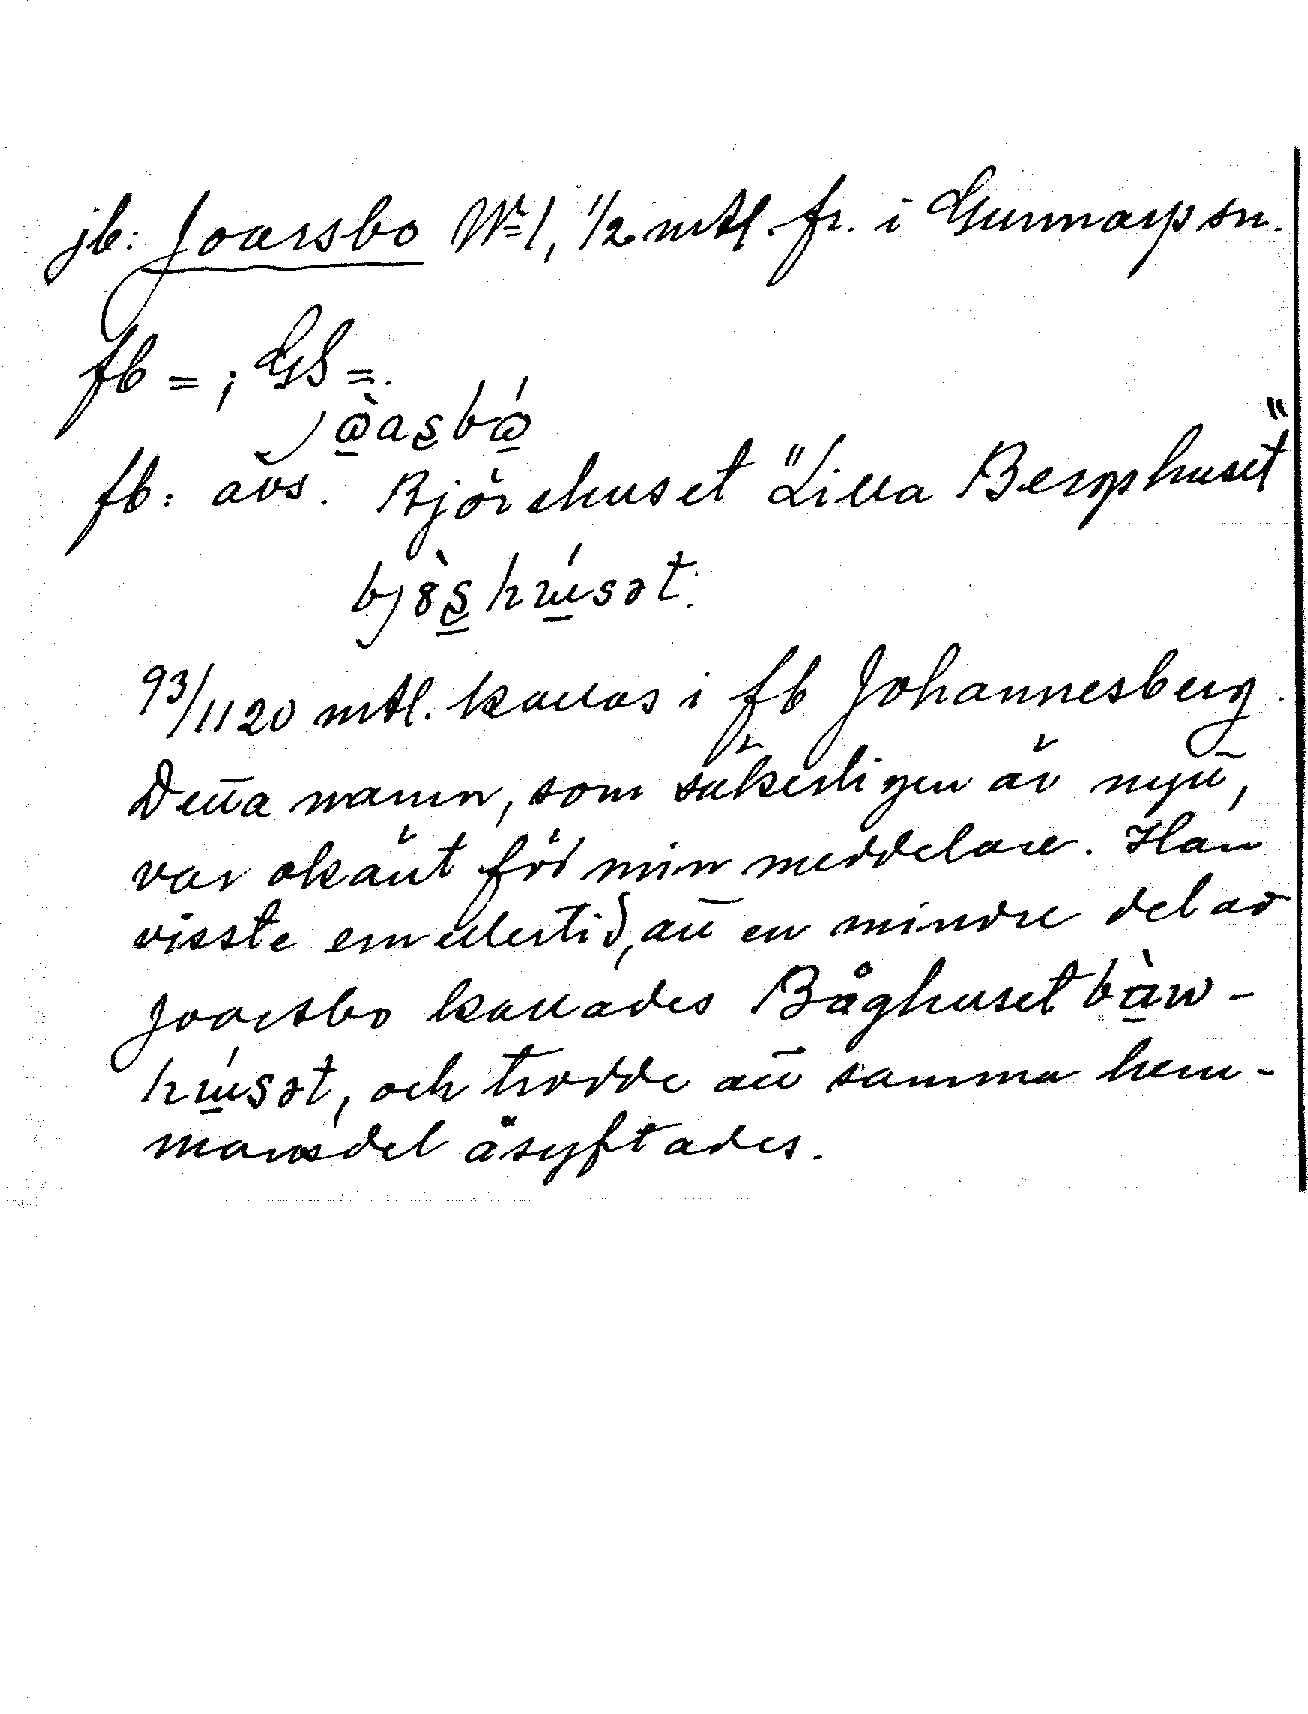 jb: Joarsbo No 1, 1/2 mtl. fr. i Gunnarp sn.
fb = ; GS =.
jàasbó
fb: avs. Björshuset "Lilla Bergshuset"
bjö̀shúsət.
93/1120 mtl. kallas i fb Johannesberg.
Detta namn, som säkerligen är nytt,
var okänt för min meddelare. Han
visste emellertid, att en mindre del av
Joarsbo kallades Båghuset bàw-
húsət, och trodde att samma hem-
mansdel åsyftades.